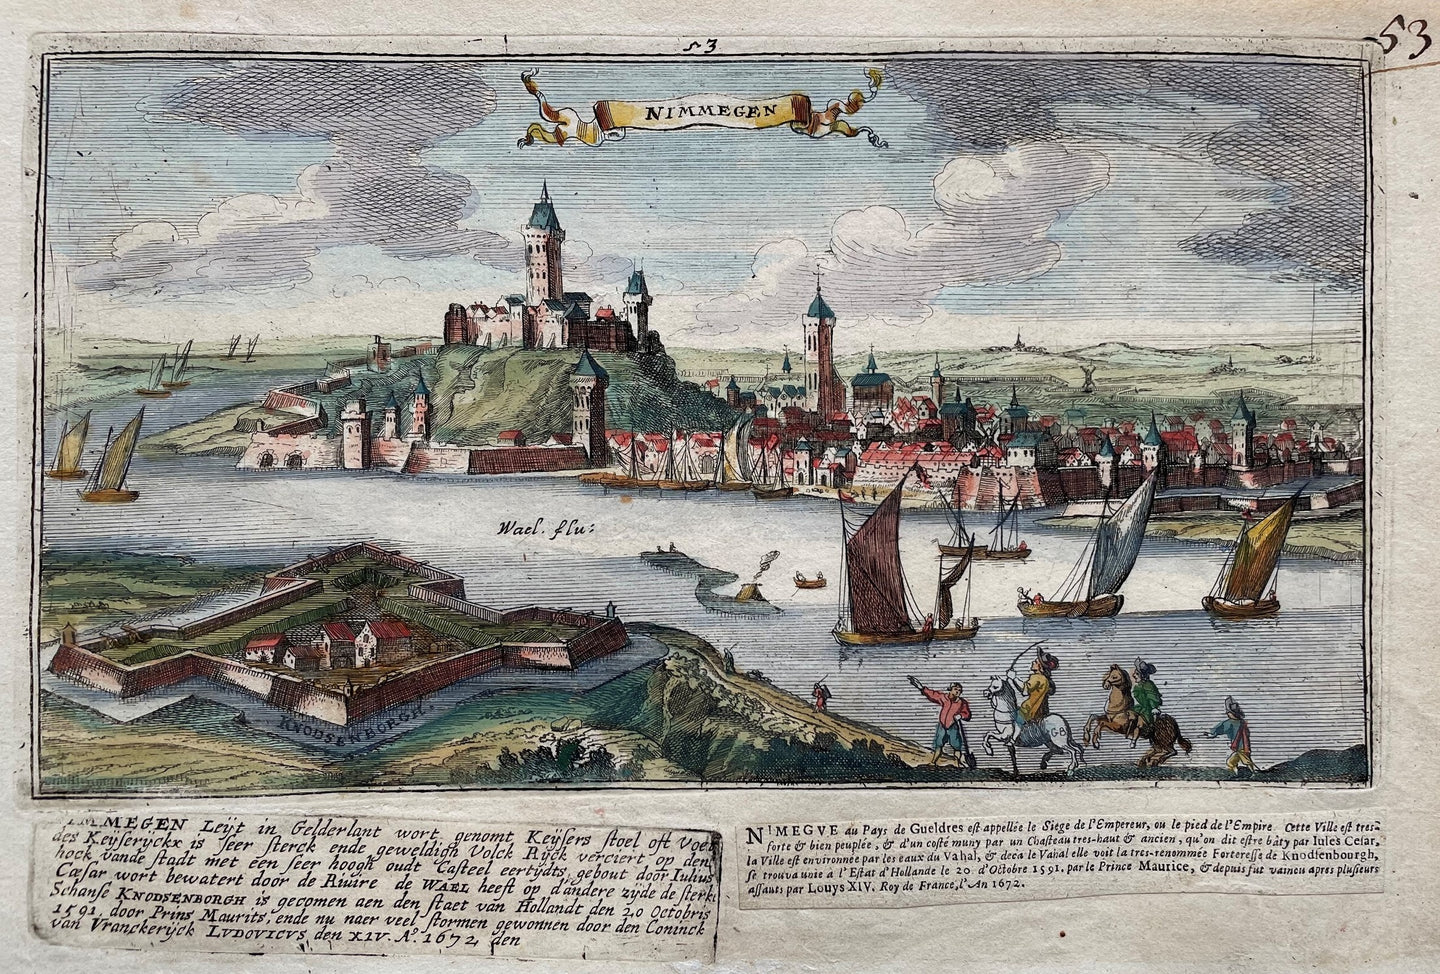 53
53
NIMMEGEN
Wael. flu:
KNODSENBORGH.
GB
MMEGEN Leÿt in Gelderlant wort genomt Keÿsers stoel oft Voet
des Keÿserÿckx is seer sterck ende geweldigh Volck Rÿck verciert op den
hock vande stadt met een seer hoogh oudt Casteel eertÿdts gebout door Iulius
Cæsar wort bewatert door de Riuire de WAEL heeft op d'andere zÿde de sterke
Schanse KNODSENBORGH is gecomen aen den staet van Hollandt den 20 Octobris
1591, door Prins Maurits, ende nu naer veel stormen gewonnen door den Coninck
van Vranckerÿck LVDOVICVS den XIV. Aº. 1672, den
NIMEGVE au Pays de Gueldres est appellée le Siege de l'Empereur, ou le pied de l'Empire. Cette Ville est tres-
forte & bien peuplée, & d'un costé muny par un Chasteau tres-haut & ancien, qu'on dit estre bâty par Iules Cesar,
la Ville est environnée par les eaux du Vahal, & deca le Vahal elle voit la tres-renommée Forteresse de Knodsenbourgh,
se trouva unie à l'Estat d'Hollande le 20 d'Octobre 1591. par le Prince Maurice, & depuis fut vaincu apres plusieurs
assauts par Louys XIV. Roy de France, l'An 1672.